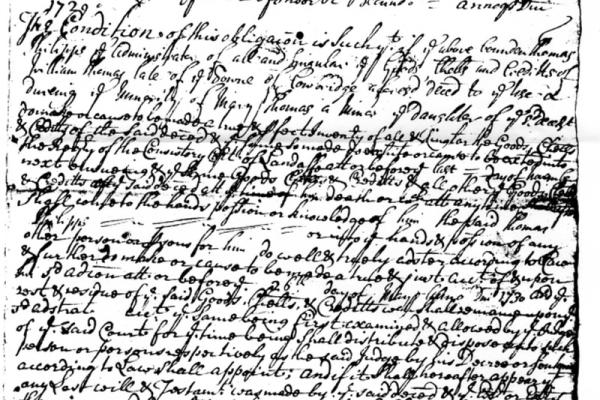 1729
The Condition of this obligation is Such yt if ye above bounden Thomas
Philipps Administrator of all and singular ye Goods Chells and Creditts of
William Thomas late of ye Towne of Cowbridge decd to ye use &
dureing ye Minority of Mary Thomas a Minor ye daughter of ye sd
make or cause to be made a true & perfect Inventy of all & singular the Goods, Chells
& Creditts of the said deced & ye same so made do exhibite or cause to be exhibited into
the Registry of the Consistory Court of Landaffe att or before ye last day of
next ensueing & ye same Goods Chells & Creditts & all other ye Goods Chells
& Creditts of ye said deced att ye time of his death or wch att any time
Shall come to the hands possion or knowledge of him the said Thomas
Philipps or into ye hands & possion of any
other person or psons for him do well & truely adster according to Law
& further do make or cause to be made a true & just acct of & upon
his sd adcion att or before ye day of May Anno Dni 1730 And ye
rest & residue of ye said Goods Chells & Creditts wch shall remaine upon ye
sd adstrat acct ye same being first examined & allowed by ye Judge
of ye said Court for ye time being shall distribute & dispose
person or persons respectively as the said Judge by his Decree or sentence
according to Law shall appoint; and if it shall hereafter appear yt
any Last will & Testamt was made by ye said deced & ye